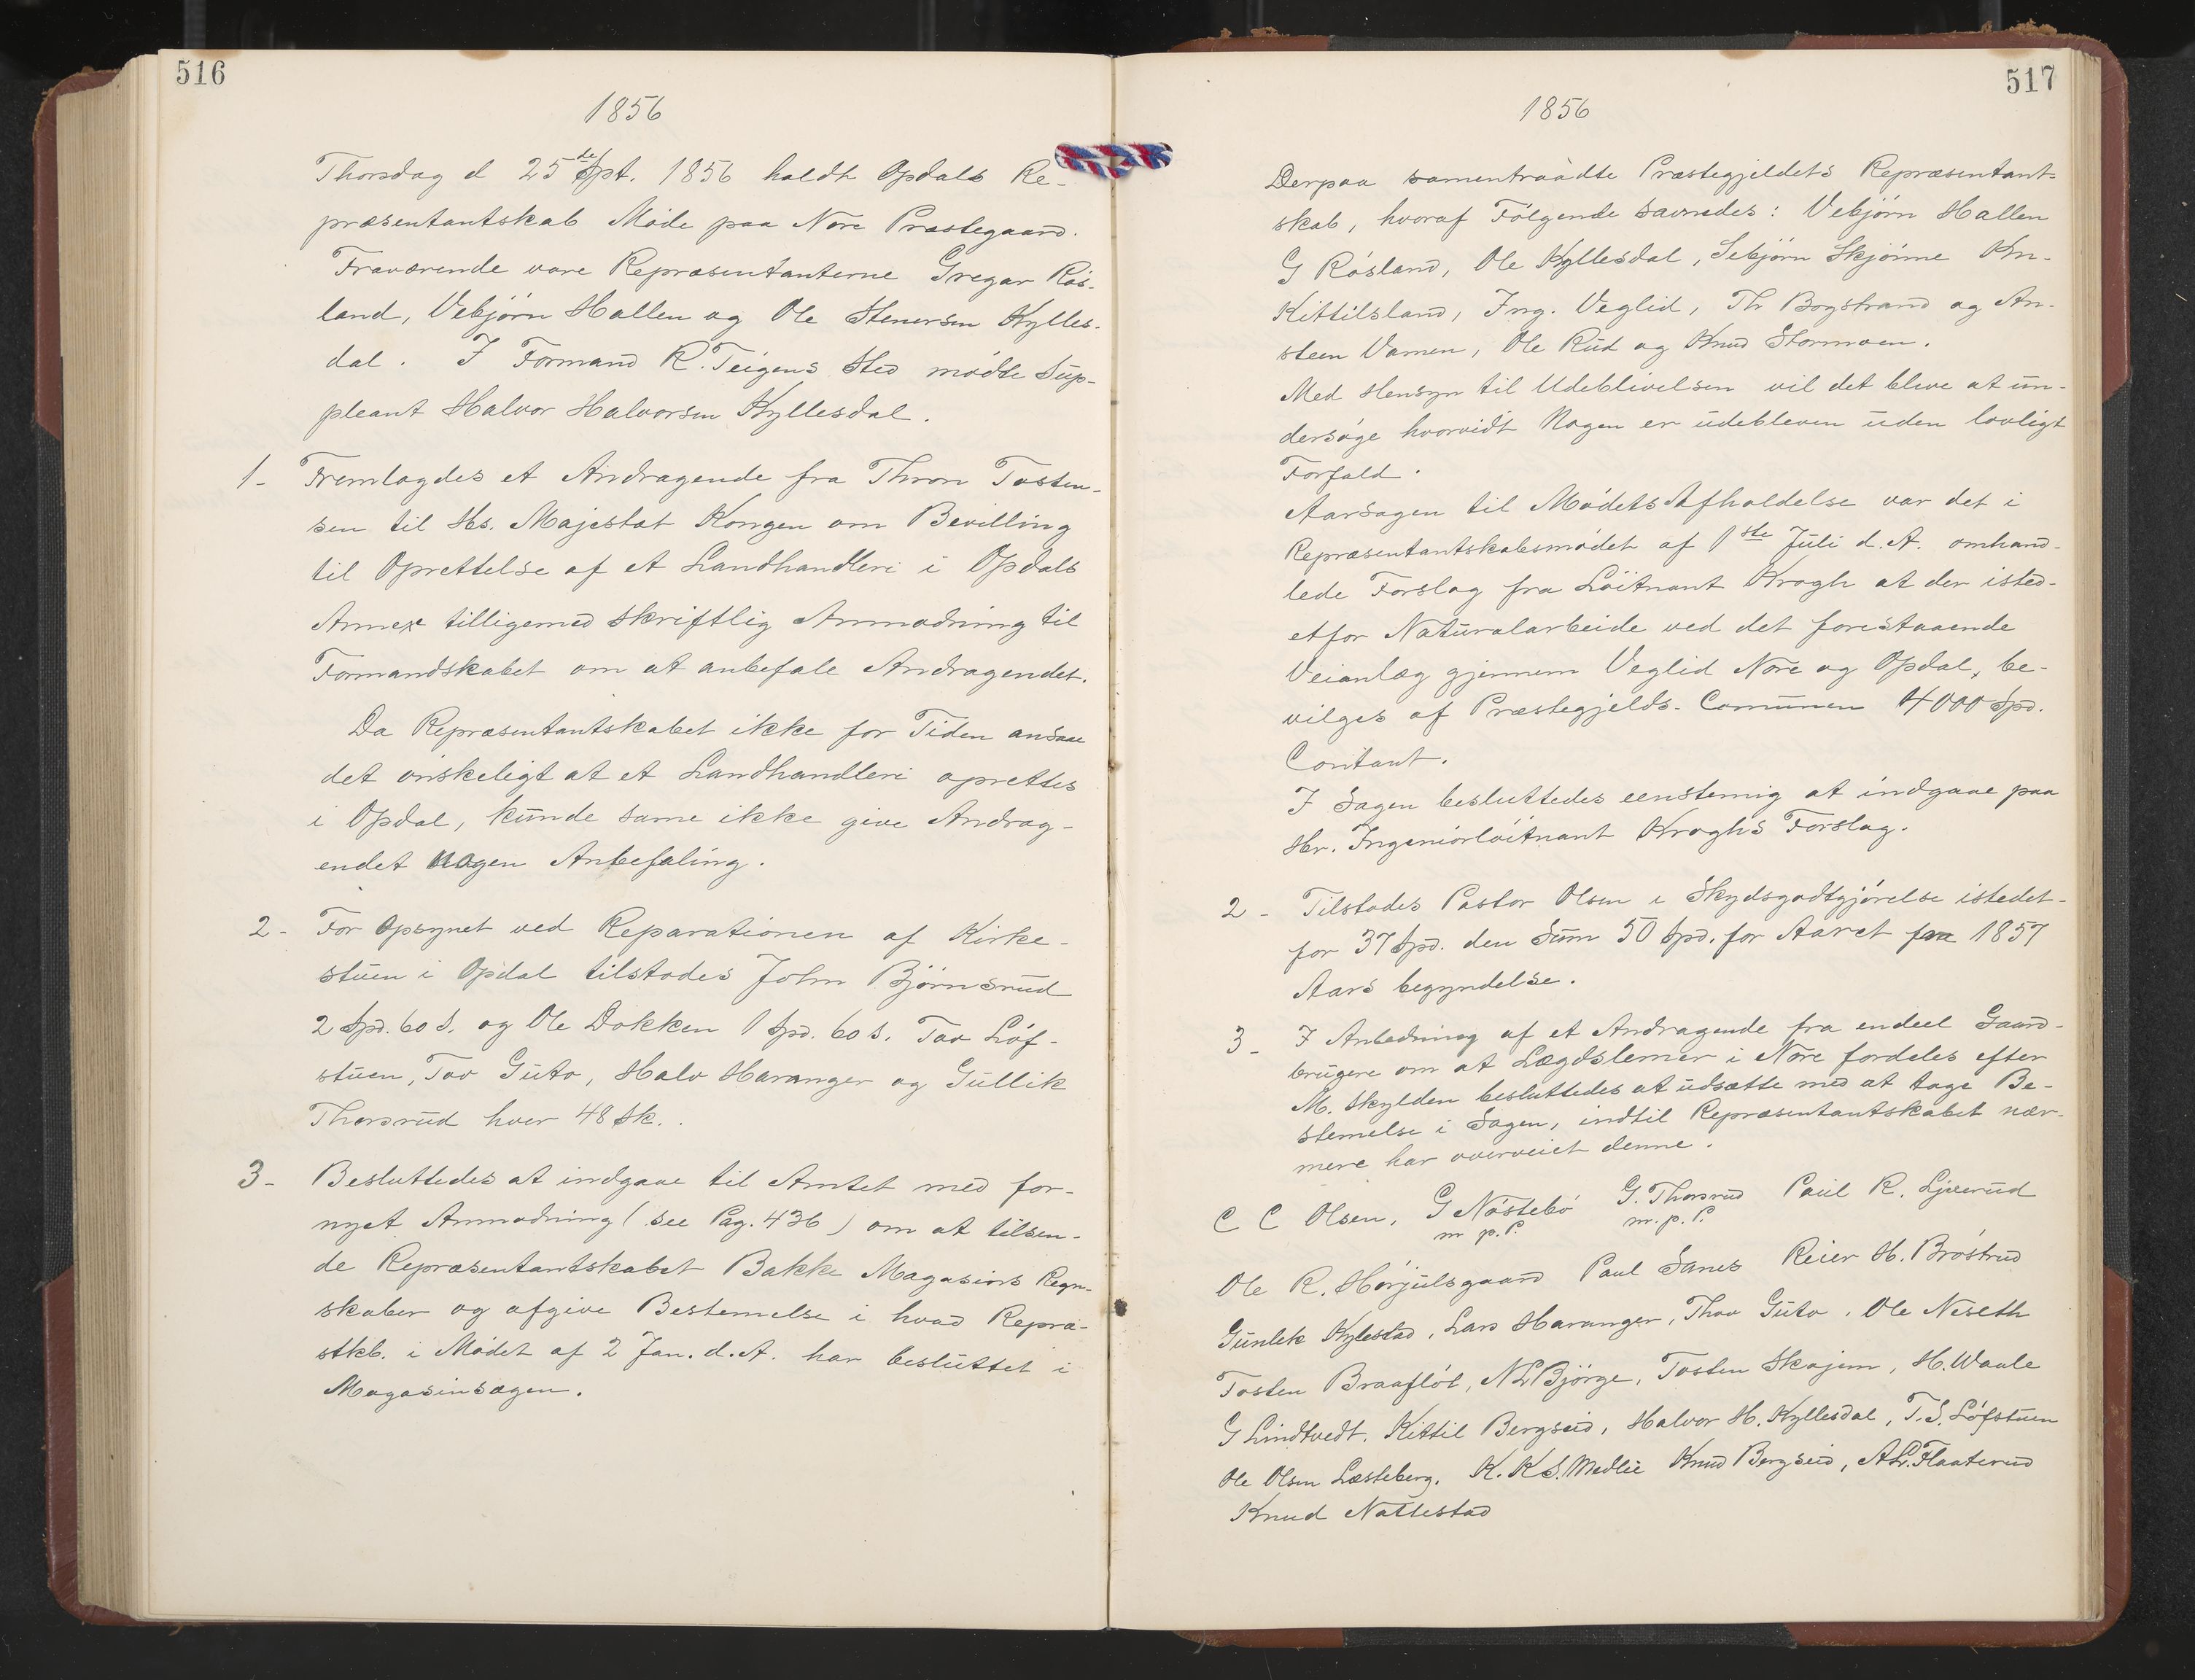 516
1856
Thorsdag d 25de Spt. 1856 holdt Opdals Re-
præsentantskab Møde paa Nore Præstegaard.
Fraværende vare Repræsentanterne Gregar Rös-
land, Vebjörn Hallen og Ole Stenersen Kylles-
dal. I Formand R. Teigens Sted mödte Sup-
pleant Halvor Halvorsen Kyllesdal.
1- Fremlagdes et Andragende fra Thron Tosten-
sen til Hs. Majestæt Kongen om Bevilling
til Oprettelse af et Landhandleri i Opdals
Annex tilligemed skriftlig Anmodning til
Formandskabet om at anbefale Andragendet.
Da Repræsentantskabet ikke for Tiden ansaae
det önskeligt at et Landhandleri oprettes
i Opdal, kunde same ikke give Andrag-
endet nogen Anbefaling.
2- For Opsynet ved Reparationen af Kirke-
stuen i Opdal tilstodes John Björnsrud
2 Spd. 60 s. og Ole Dokken 1 Spd. 60 s. Tov Löf-
stuen, Tov Guto, Halv Haranger og Gullik
Thorsrud hver 48 Sk.
3- Besluttedes at indgaae til Amtet med for-
nyet Anmodning (see Pag. 436) om at tilsen-
de Repræsentantskabet Bakke Magasins Regn-
skaber og afgive Bestemelse i hvad Repræ-
stkb. i Mödet af 2 Jan. d. A. har besluttet i
Magasinsagen.
517
1856
Derpaa samentraadte Præstegjeldets Repræsentant-
skab, hvoraf Fölgende savnedes: Vebjörn Hallen
G Rösland, Ole Kyllesdal, Sebjörn Skjönne Kn-
Kittilsland, Ing. Veglid, Th Bogstrand og An-
steen Vamen, Ole Rud og Knud Stormoen.
Med Hensyn til Udeblivelsen vil det blive at un-
dersöge hvorvidt Nogen er udebleven uden lovligt
Forfald.
Aarsagen til Mödets Afholdelse var det i
Repræsentantskabsmödet af 1ste Juli d. A. omhand-
lede Forslag fra Löitnant Krogh at der isted-
etfor Naturalarbeide ved det forestaaende
Veianlæg gjennem Veglid Nore og Opdal, be-
vilges af Præstegjelds-Comunen 4000 Spd.
Contant.
I Sagen besluttedes eenstemig at indgaae paa
Hr. Ingeniörlöitnant Kroghs Forslag.
2- Tilstodes Pastor Olsen i Skydsgodtgjörelse istedet-
for 37 Spd. den Sum 50 Spd. for Aaret fra 1857
Aars begyndelse.
3- I Anledning af et Andragende fra endeel Gaard-
brugere om at Lægdslemer i Nore fordeles efter
M. Skylden besluttedes at udsætte med at tage Be-
stemelse i Sagen, indtil Repræsentantskabet nær-
mere har overveiet denne.
C C Olsen, G Nöstebö G. Thorsrud Paul R. Ljøterud
m p. P. m. p. P.
Ole R. Hörjulsgaard Paul Sanes Reier H. Bröstrud
Gunlek Kylestad, Lars Haranger, Thov Guto, Ole Neseth
Tosten Braaflöt, N L Björge, Tosten Skajem, H. Waale
G Lindtvedt. Kittil Bergseid, Halvor H. Kyllesdal, T. S. Löfstuen
Ole Olsen Læsteberg. K. K S. Medlie Knud Bergseid, A L. Flaaterud
Knud Nattestad